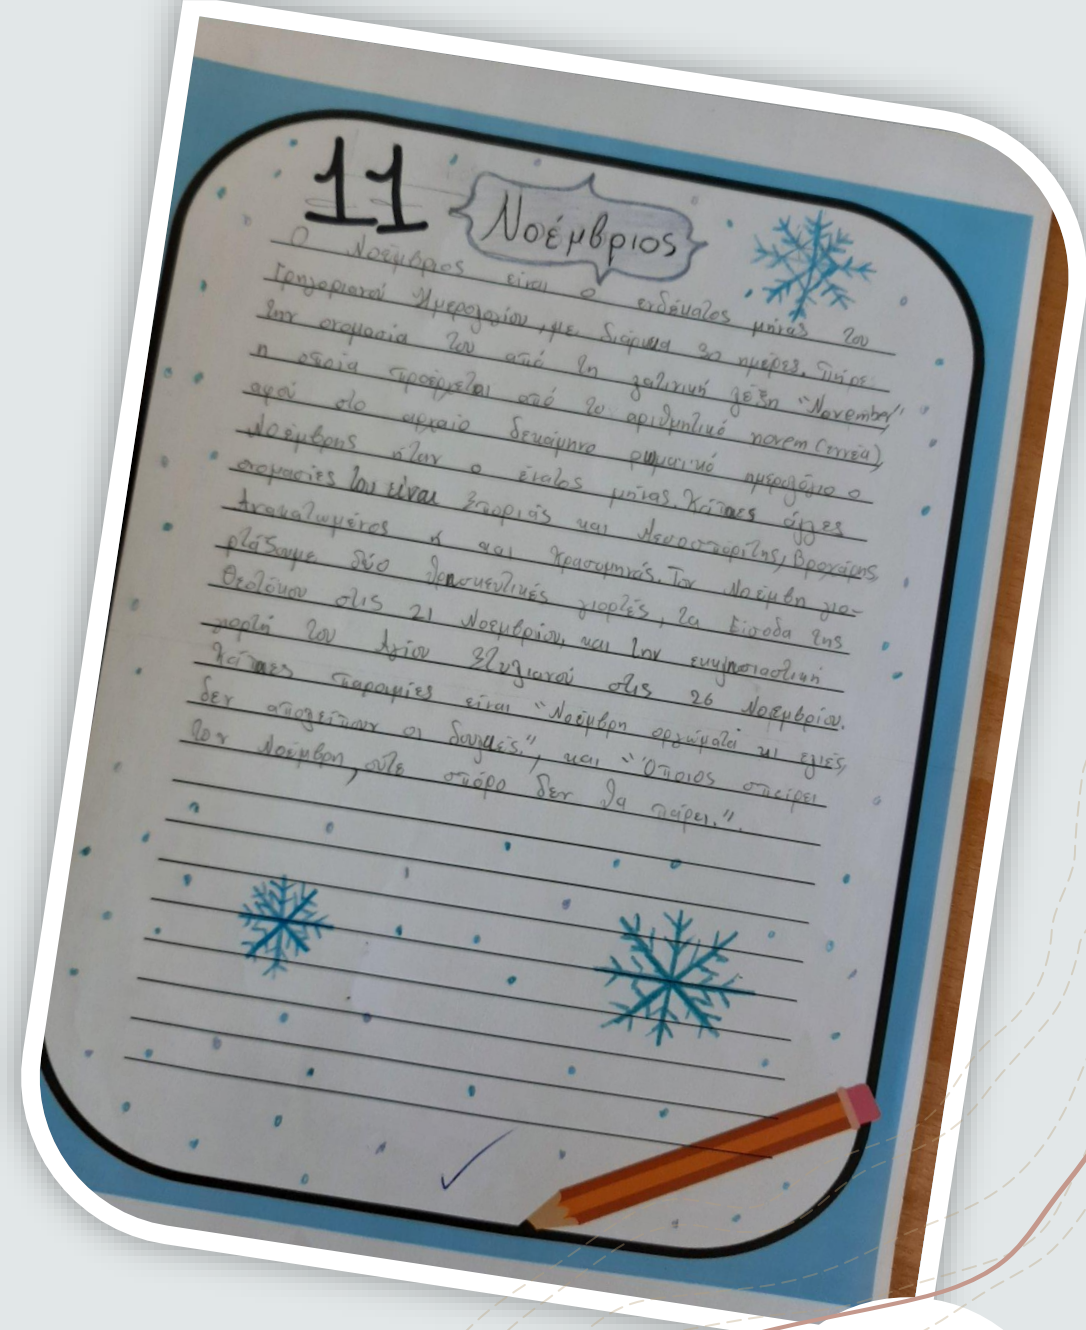 11
Νοέμβριος
Ο Νοέμβριος είναι ο ενδέκατος μήνας του
Γρηγοριανού Ημερολογίου, με διάρκεια 30 ημέρες. Πήρε
την ονομασία του από τη λατινική λέξη "November"
η οποία προέρχεται από το αριθμητικό novem (εννέα),
αφού στο αρχαίο δεκάμηνο ρωμαϊκό ημερολόγιο ο
Νοέμβρης ήταν ο ένατος μήνας. Κάποιες άλλες
ονομασίες του είναι Σποριάς και Μεσοσπορίτης, Βροχάρης,
Ανακατωμένος και Κρασομηνάς. Τον Νοέμβρη γιο-
ρτάζουμε δύο θρησκευτικές γιορτές, τα Εισόδα της
Θεοτόκου στις 21 Νοεμβρίου, και την εκκλησιαστική
γιορτή του Αγίου Στυλιανού στις 26 Νοεμβρίου.
Κάποιες παροιμίες είναι "Νοέμβρη οργώματα κι ελιές,
δεν απολείπουν οι δουλειές.", και "Όποιος σπείρει
τον Νοέμβρη, ούτε σπόρο δεν θα πάρει.".